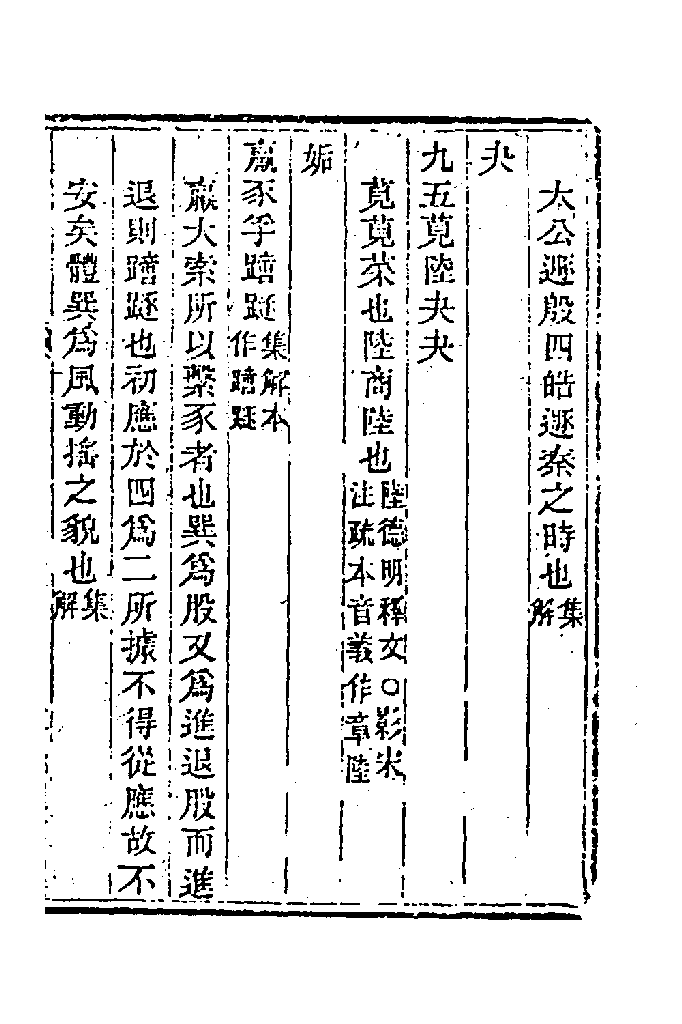 太公遯殷四皓遯秦之時也集解
夬
九五莧陸夬夬
莧莧菜也陸商陸也陸德明釋文○影宋注疏本音義作章陸
姤
羸豕孚蹢𨅛集解本作蹢𨅛
羸大索所以繫豕者也巽爲股又爲進退股而進
退則蹢𨅛也初應於四爲二所據不得從應故不
安矣體巽爲風動搖之貌也集解